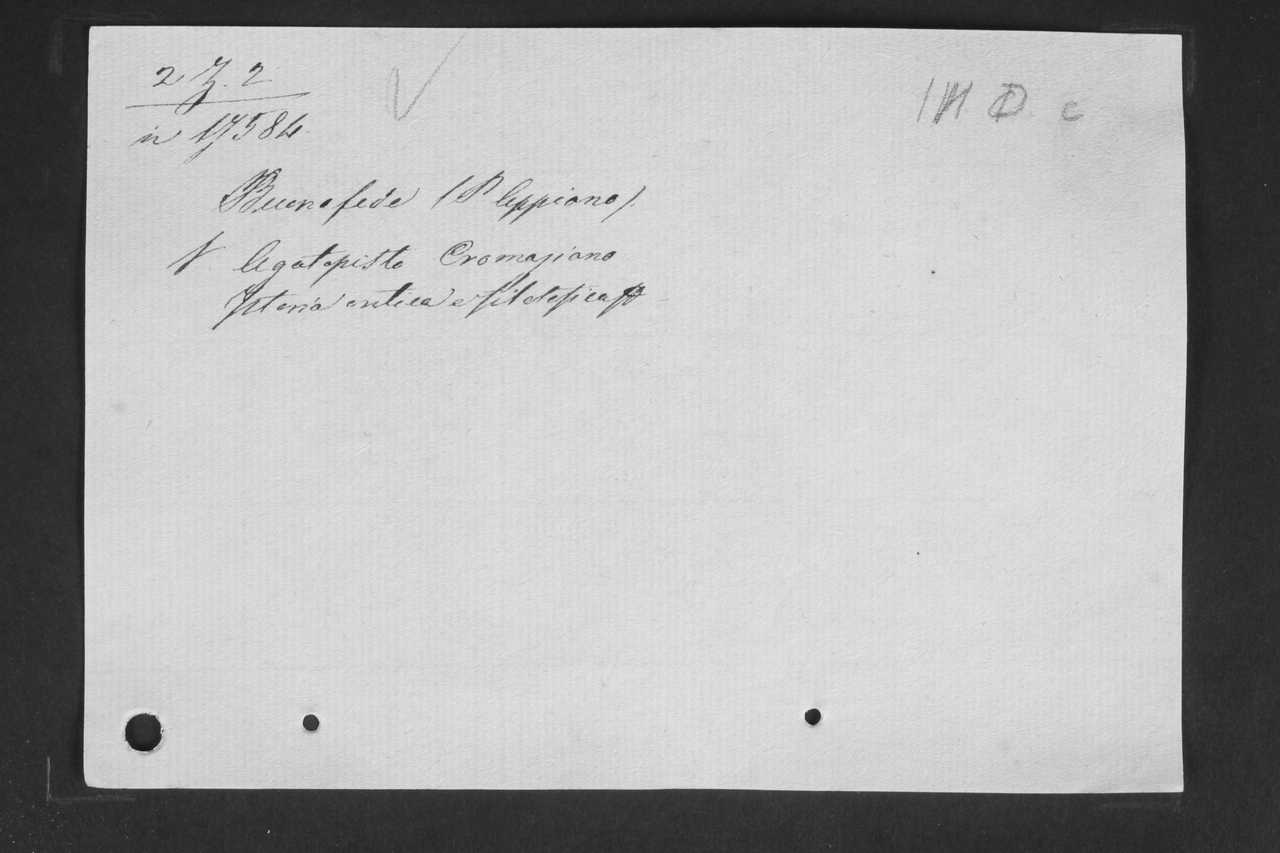 2 Z. 2
in 17584
Buonafede (P Appiano).
V. Agatopisto Cromaziano
Istoria critica e filosofica